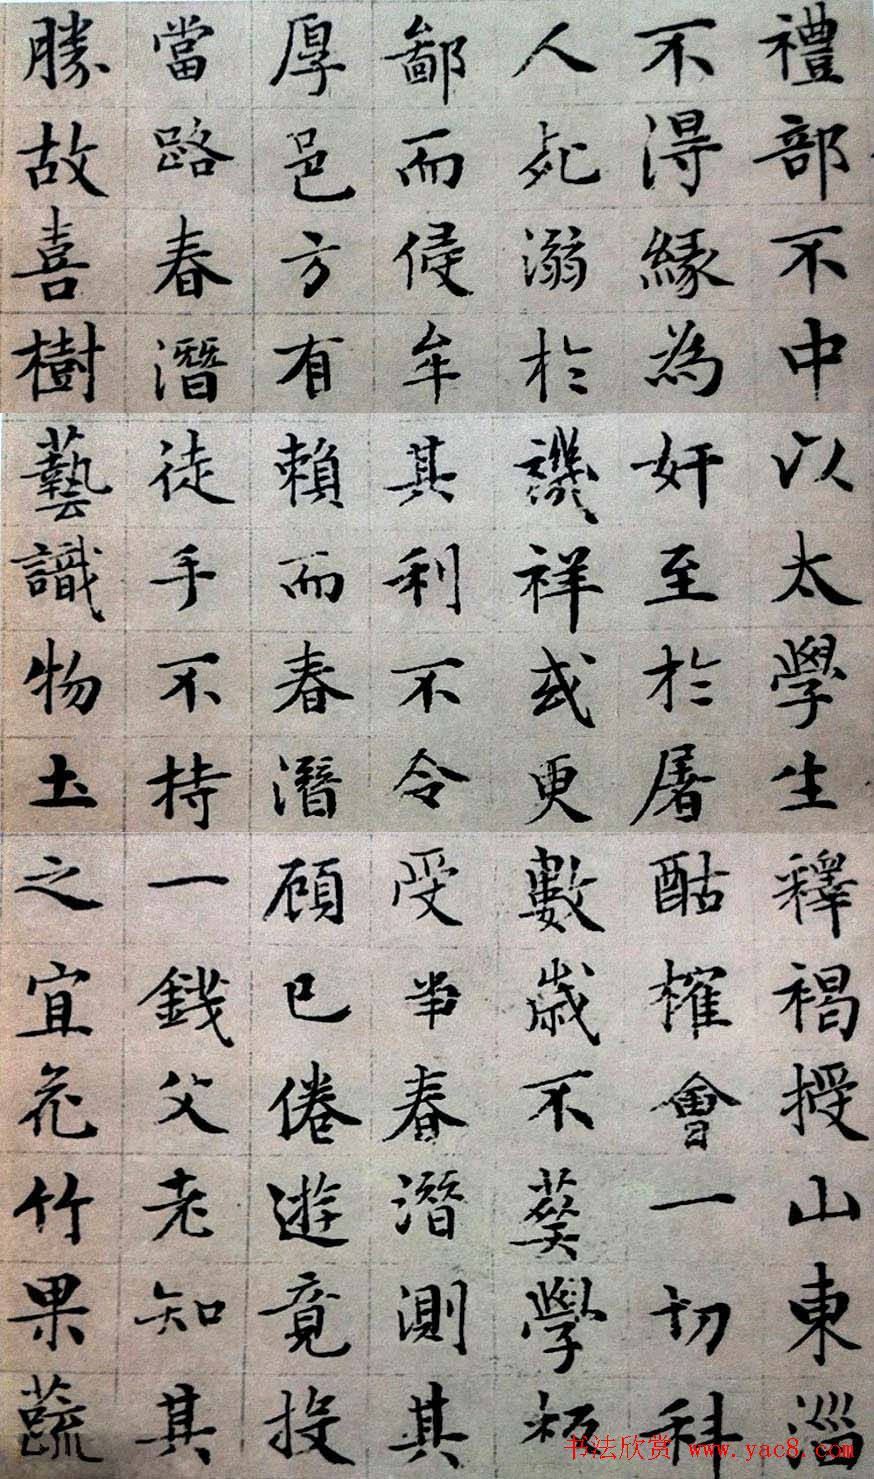 禮部不中以太學生釋褐授山東淄
不得緣為奸至於屠酤榷會一切科
人死溺於禨祥或更數歲不葬學
鄙而侵牟其利不令受半春潛測其
厚邑方有賴而春潛顧已倦遊竟投
當路春潛徒手不持一錢父老知其
勝故喜樹藝識物土之宜花竹果蔬
书法欣赏 www.yac8.com